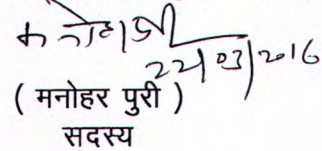 22/03/2016
( मनोहर पुरी )
सदस्य